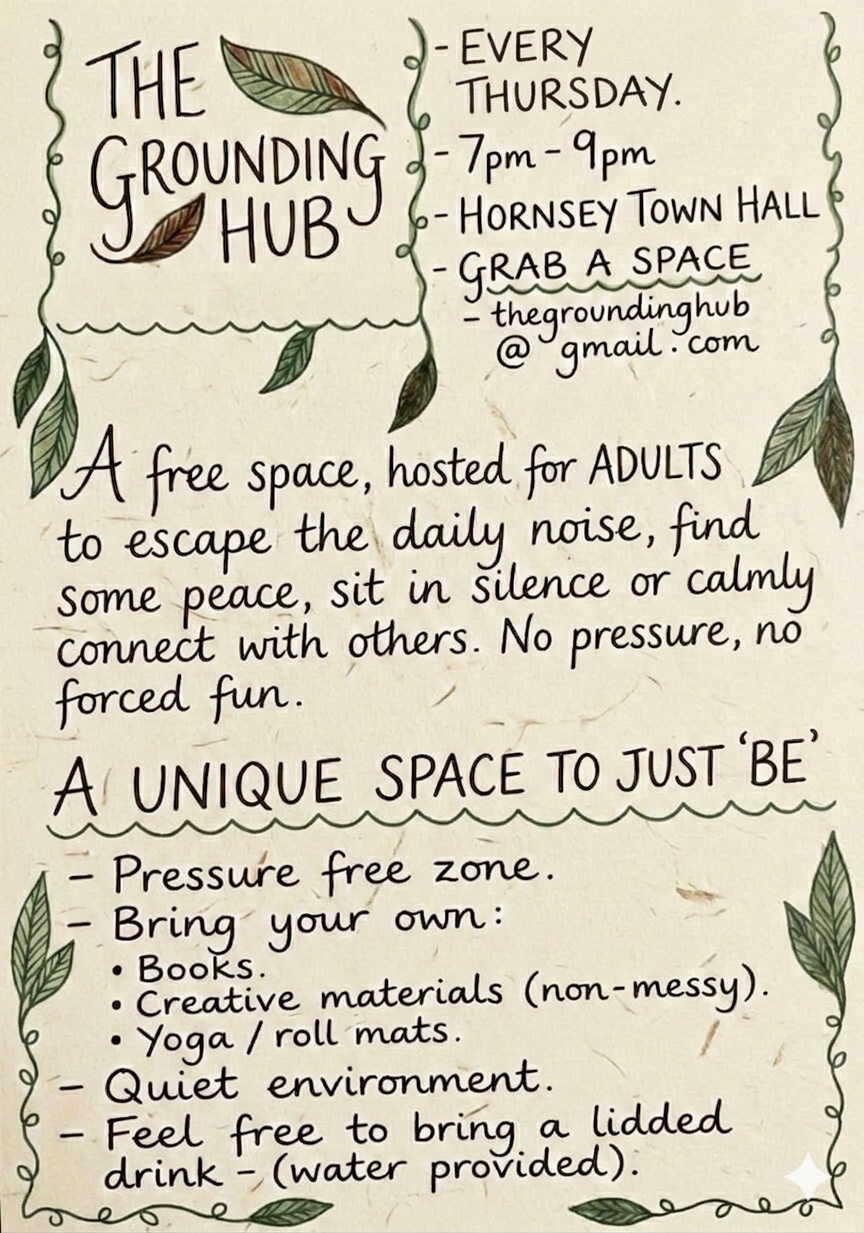 THE
GROUNDING
HUB
- EVERY
THURSDAY.
- 7pm - 9pm
- HORNSEY TOWN HALL
- GRAB A SPACE
- thegroundinghub
@ gmail.com
A free space, hosted for ADULTS
to escape the daily noise, find
some peace, sit in silence or calmly
connect with others. No pressure, no
forced fun.
A UNIQUE SPACE TO JUST 'BE'
- Pressure free zone.
- Bring your own:
• Books.
• Creative materials (non-messy).
• Yoga / roll mats.
- Quiet environment.
- Feel free to bring a lidded
drink - (water provided).